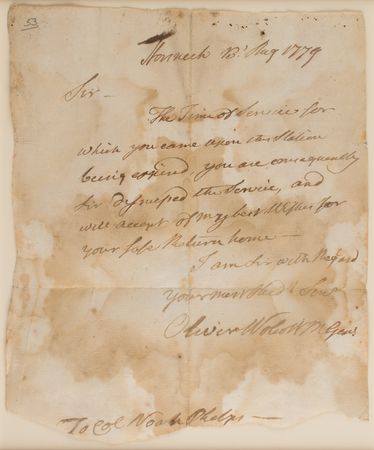 53
Horsneck 13t Aug 1779
Sir —
The Time of Service for
which you came upon this Station
being expired, you are consequently
Sir dismissed the Service, and
will accept of my best Wishes for
your safe Return home —
I am Sir with Regard
your most Obed t Serv
Oliver Wolcott M Genl
To Col Noah Phelps —